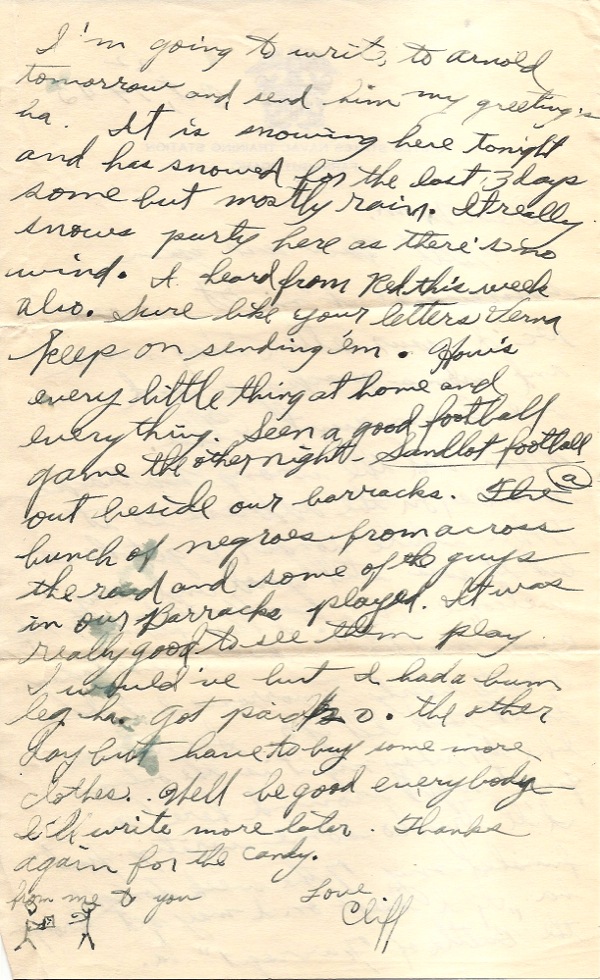 I'm going to write to Arnold
tomorrow and send him my greeting's
ha. It is snowing here tonight
and has snowed for the last 3 days
some but mostly rain. It really
snows purty here as there's no
wind. I heard from Red this week
also. Sure like your letters Verna
keep on sending 'em. How's
every little thing at home and
everything. Seen a good football
game the other night - Sandlot football
out beside our barracks. The a
bunch of negroes from across
the road and some of the guys
in our Barracks played. It was
really good to see them play.
I would've but I had a bum
leg ha. Got paid the other
day but have to buy some more
clothes. Well be good everybody
I'll write more later. Thanks
again for the candy.
from me to you Love
Cliff